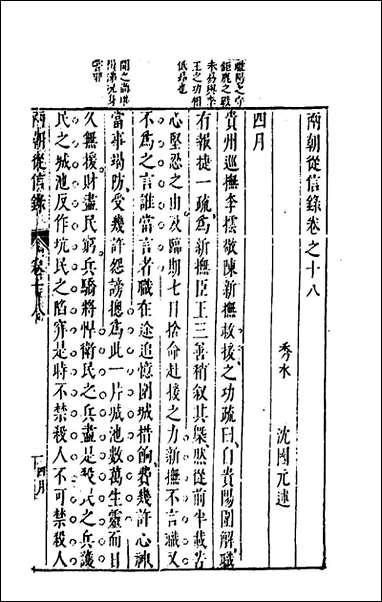 兩朝從信錄卷之十八
秀水　沈國元　述
四月
貴州巡撫李橒敬陳新撫救援之功疏曰自貴陽圍解職
有報捷一疏爲新撫臣王三善稍叙其槩然從前半載苦
心堅忍之由及臨期七日捨命赴援之力新撫不言職又
不爲之言誰當言者職在途追憶圍城措餉費幾許心神
當事堵防受幾許怨謗總爲此一片城池數萬生靈而日
久無援財盡民窮兵驕將悍衛民之兵盡是殺民之兵護
民之城池反作坑民之陷穽是時不禁殺人不可禁殺人
睢陽之守
鉅鹿之戰
未易與李
王之功相
低昻也
聞之當時
兩朝從信錄
四月